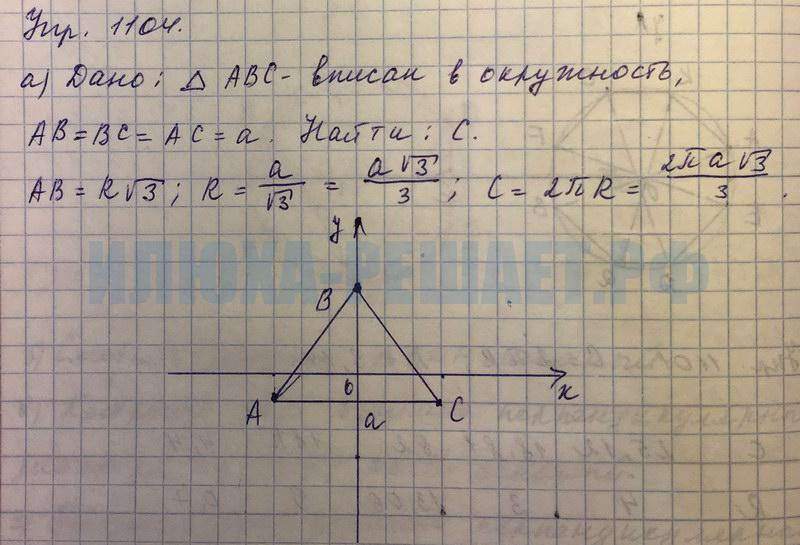 Упр. 1104.
а) Дано: △ ABC - вписан в окружность,
AB = BC = AC = a. Найти: C.
AB = R√3; R = a/√3 = a√3/3; C = 2πR = 2πa√3/3.
y
ИЛЮХА-РЕШАЕТ.РФ
B
x
0
A
a
C